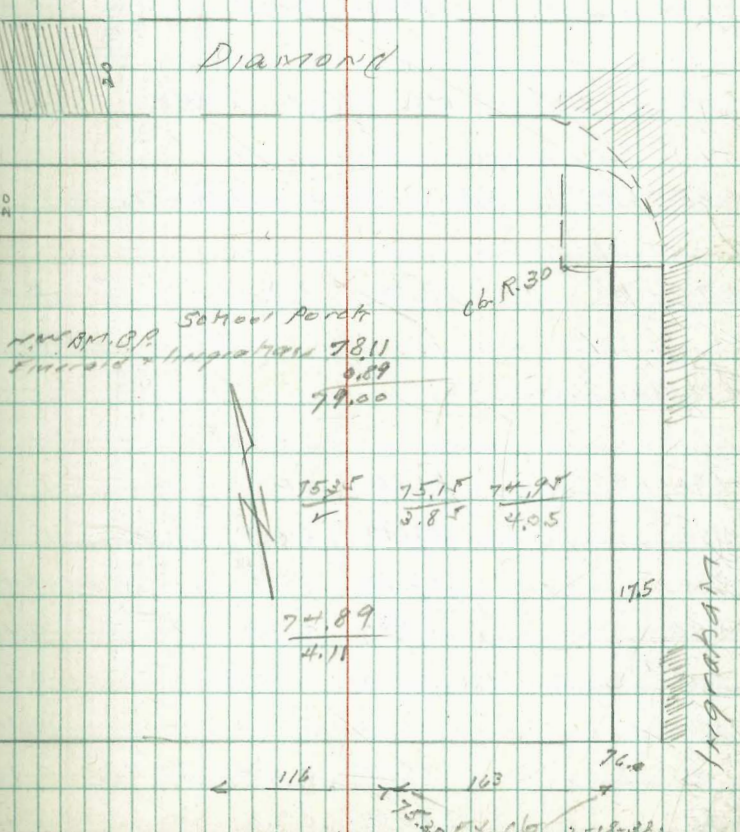 Diamond
20
20
cb. R. 30
School Porch
N.W. B.M. B.P.
Emerald & Ingraham 78.11
0.89
79.00
75.35 75.15 74.95
3.85 4.05
74.89
4.11
17.5
Ingraham
76.0
116 163